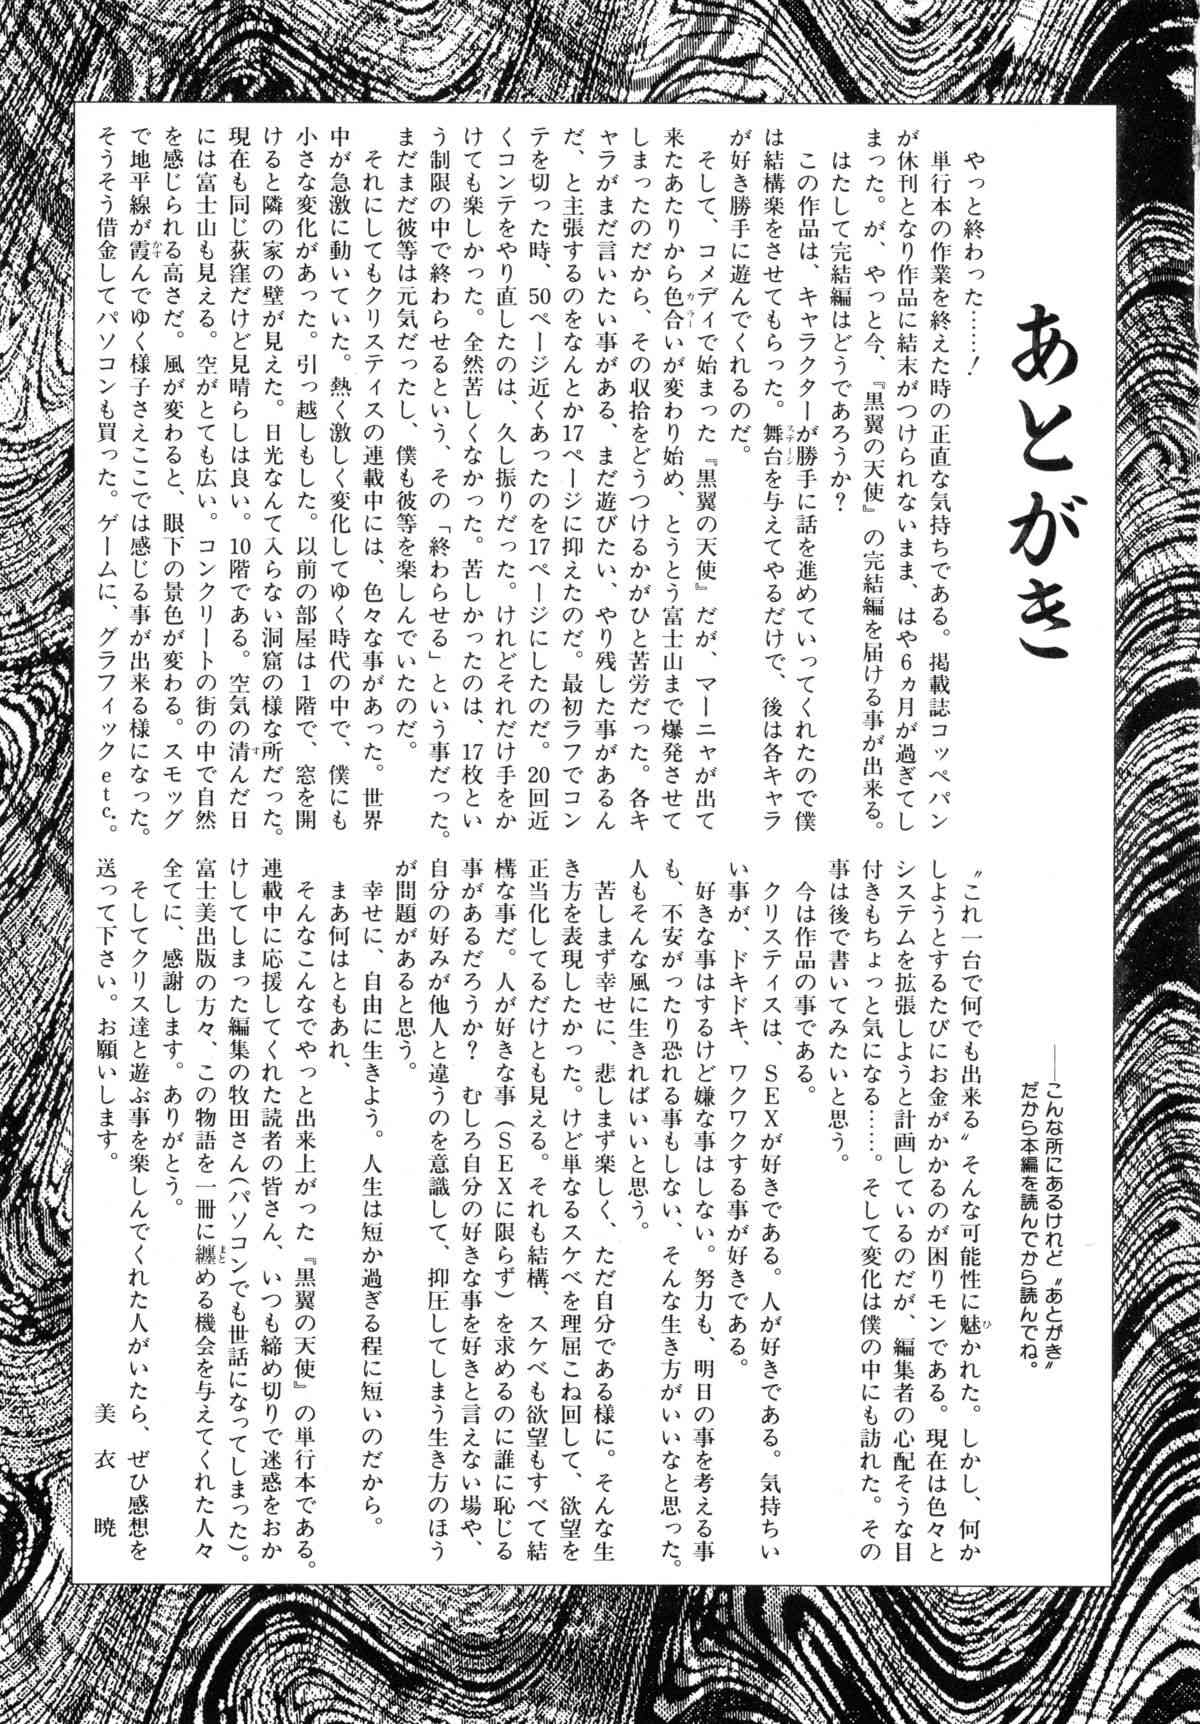 あとがき
――こんな所にあるけれど〝あとがき〟
だから本編を読んでから読んでね。
やっと終わった……！
単行本の作業を終えた時の正直な気持ちである。掲載誌コッペパン
が休刊となり作品に結末がつけられないまま、はや6ヵ月が過ぎてし
まった。が、やっと今、『黒翼の天使』の完結編を届ける事が出来る。
はたして完結編はどうであろうか？
この作品は、キャラクターが勝手に話を進めていってくれたので僕
は結構楽をさせてもらった。舞台を与えてやるだけで、後は各キャラ
が好き勝手に遊んでくれるのだ。
そして、コメディで始まった『黒翼の天使』だが、マーニャが出て
来たあたりから色合いが変わり始め、とうとう富士山まで爆発させて
しまったのだから、その収拾をどうつけるかがひと苦労だった。各キ
ャラがまだ言いたい事がある、まだ遊びたい、やり残した事があるん
だ、と主張するのをなんとか17ページに抑えたのだ。最初ラフでコン
テを切った時、50ページ近くあったのを17ページにしたのだ。20回近
くコンテをやり直したのは、久し振りだった。けれどそれだけ手をか
けても楽しかった。全然苦しくなかった。苦しかったのは、17枚とい
う制限の中で終わらせるという、その「終わらせる」という事だった。
まだまだ彼等は元気だったし、僕も彼等を楽しんでいたのだ。
それにしてもクリスティスの連載中には、色々な事があった。世界
中が急激に動いていた。熱く激しく変化してゆく時代の中で、僕にも
小さな変化があった。引っ越しもした。以前の部屋は1階で、窓を開
けると隣の家の壁が見えた。日光なんて入らない洞窟の様な所だった。
現在も同じ荻窪だけど見晴らしは良い。10階である。空気の清んだ日
には富士山も見える。空がとても広い。コンクリートの街の中で自然
を感じられる高さだ。風が変わると、眼下の景色が変わる。スモッグ
で地平線が霞んでゆく様子さえここでは感じる事が出来る様になった。
そうそう借金してパソコンも買った。ゲームに、グラフィックetc.。
〝これ一台で何でも出来る〟そんな可能性に魅かれた。しかし、何か
しようとするたびにお金がかかるのが困りモンである。現在は色々と
システムを拡張しようと計画しているのだが、編集者の心配そうな目
付きもちょっと気になる……。そして変化は僕の中にも訪れた。その
事は後で書いてみたいと思う。
今は作品の事である。
クリスティスは、SEXが好きである。人が好きである。気持ちい
い事が、ドキドキ、ワクワクする事が好きである。
好きな事はするけど嫌な事はしない。努力も、明日の事を考える事
も、不安がったり恐れる事もしない、そんな生き方がいいなと思った。
人もそんな風に生きればいいと思う。
苦しまず幸せに、悲しまず楽しく、ただ自分である様に。そんな生
き方を表現したかった。けど単なるスケベを理屈こね回して、欲望を
正当化してるだけとも見える。それも結構、スケベも欲望もすべて結
構な事だ。人が好きな事（SEXに限らず）を求めるのに誰に恥じる
事があるだろうか？　むしろ自分の好きな事を好きと言えない場や、
自分の好みが他人と違うのを意識して、抑圧してしまう生き方のほう
が問題があると思う。
幸せに、自由に生きよう。人生は短か過ぎる程に短いのだから。
まあ何はともあれ、
そんなこんなでやっと出来上がった『黒翼の天使』の単行本である。
連載中に応援してくれた読者の皆さん、いつも締め切りで迷惑をおか
けしてしまった編集の牧田さん（パソコンでも世話になってしまった）。
富士美出版の方々、この物語を一冊に纏める機会を与えてくれた人々
全てに、感謝します。ありがとう。
そしてクリス達と遊ぶ事を楽しんでくれた人がいたら、ぜひ感想を
送って下さい。お願いします。
美衣　暁